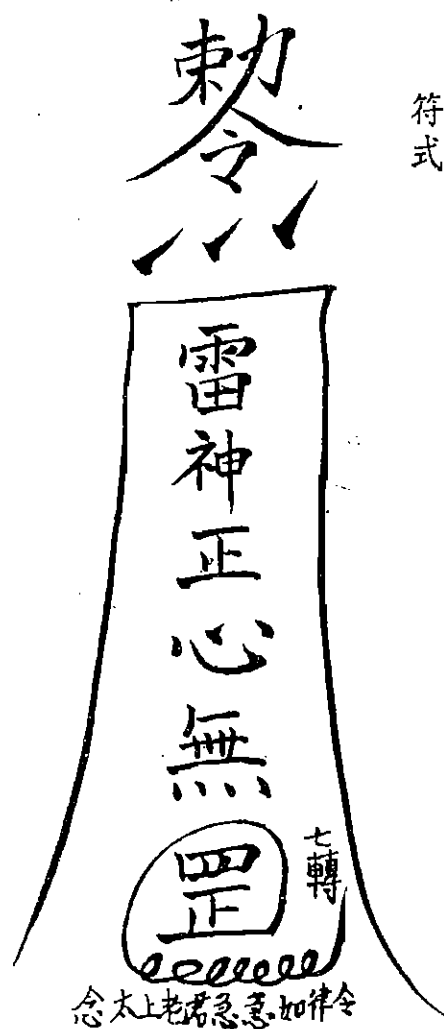 符式
勅令
雷神正心無罡
七轉
念太上老君急急如律令